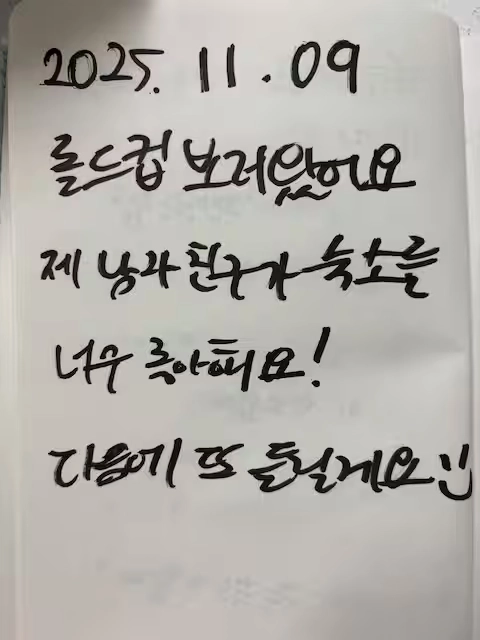 2025. 11. 09
롤드컵 보러왔어요
제 남자친구가 숙소를
너무 좋아해요!
다음에 또 들릴게요:)